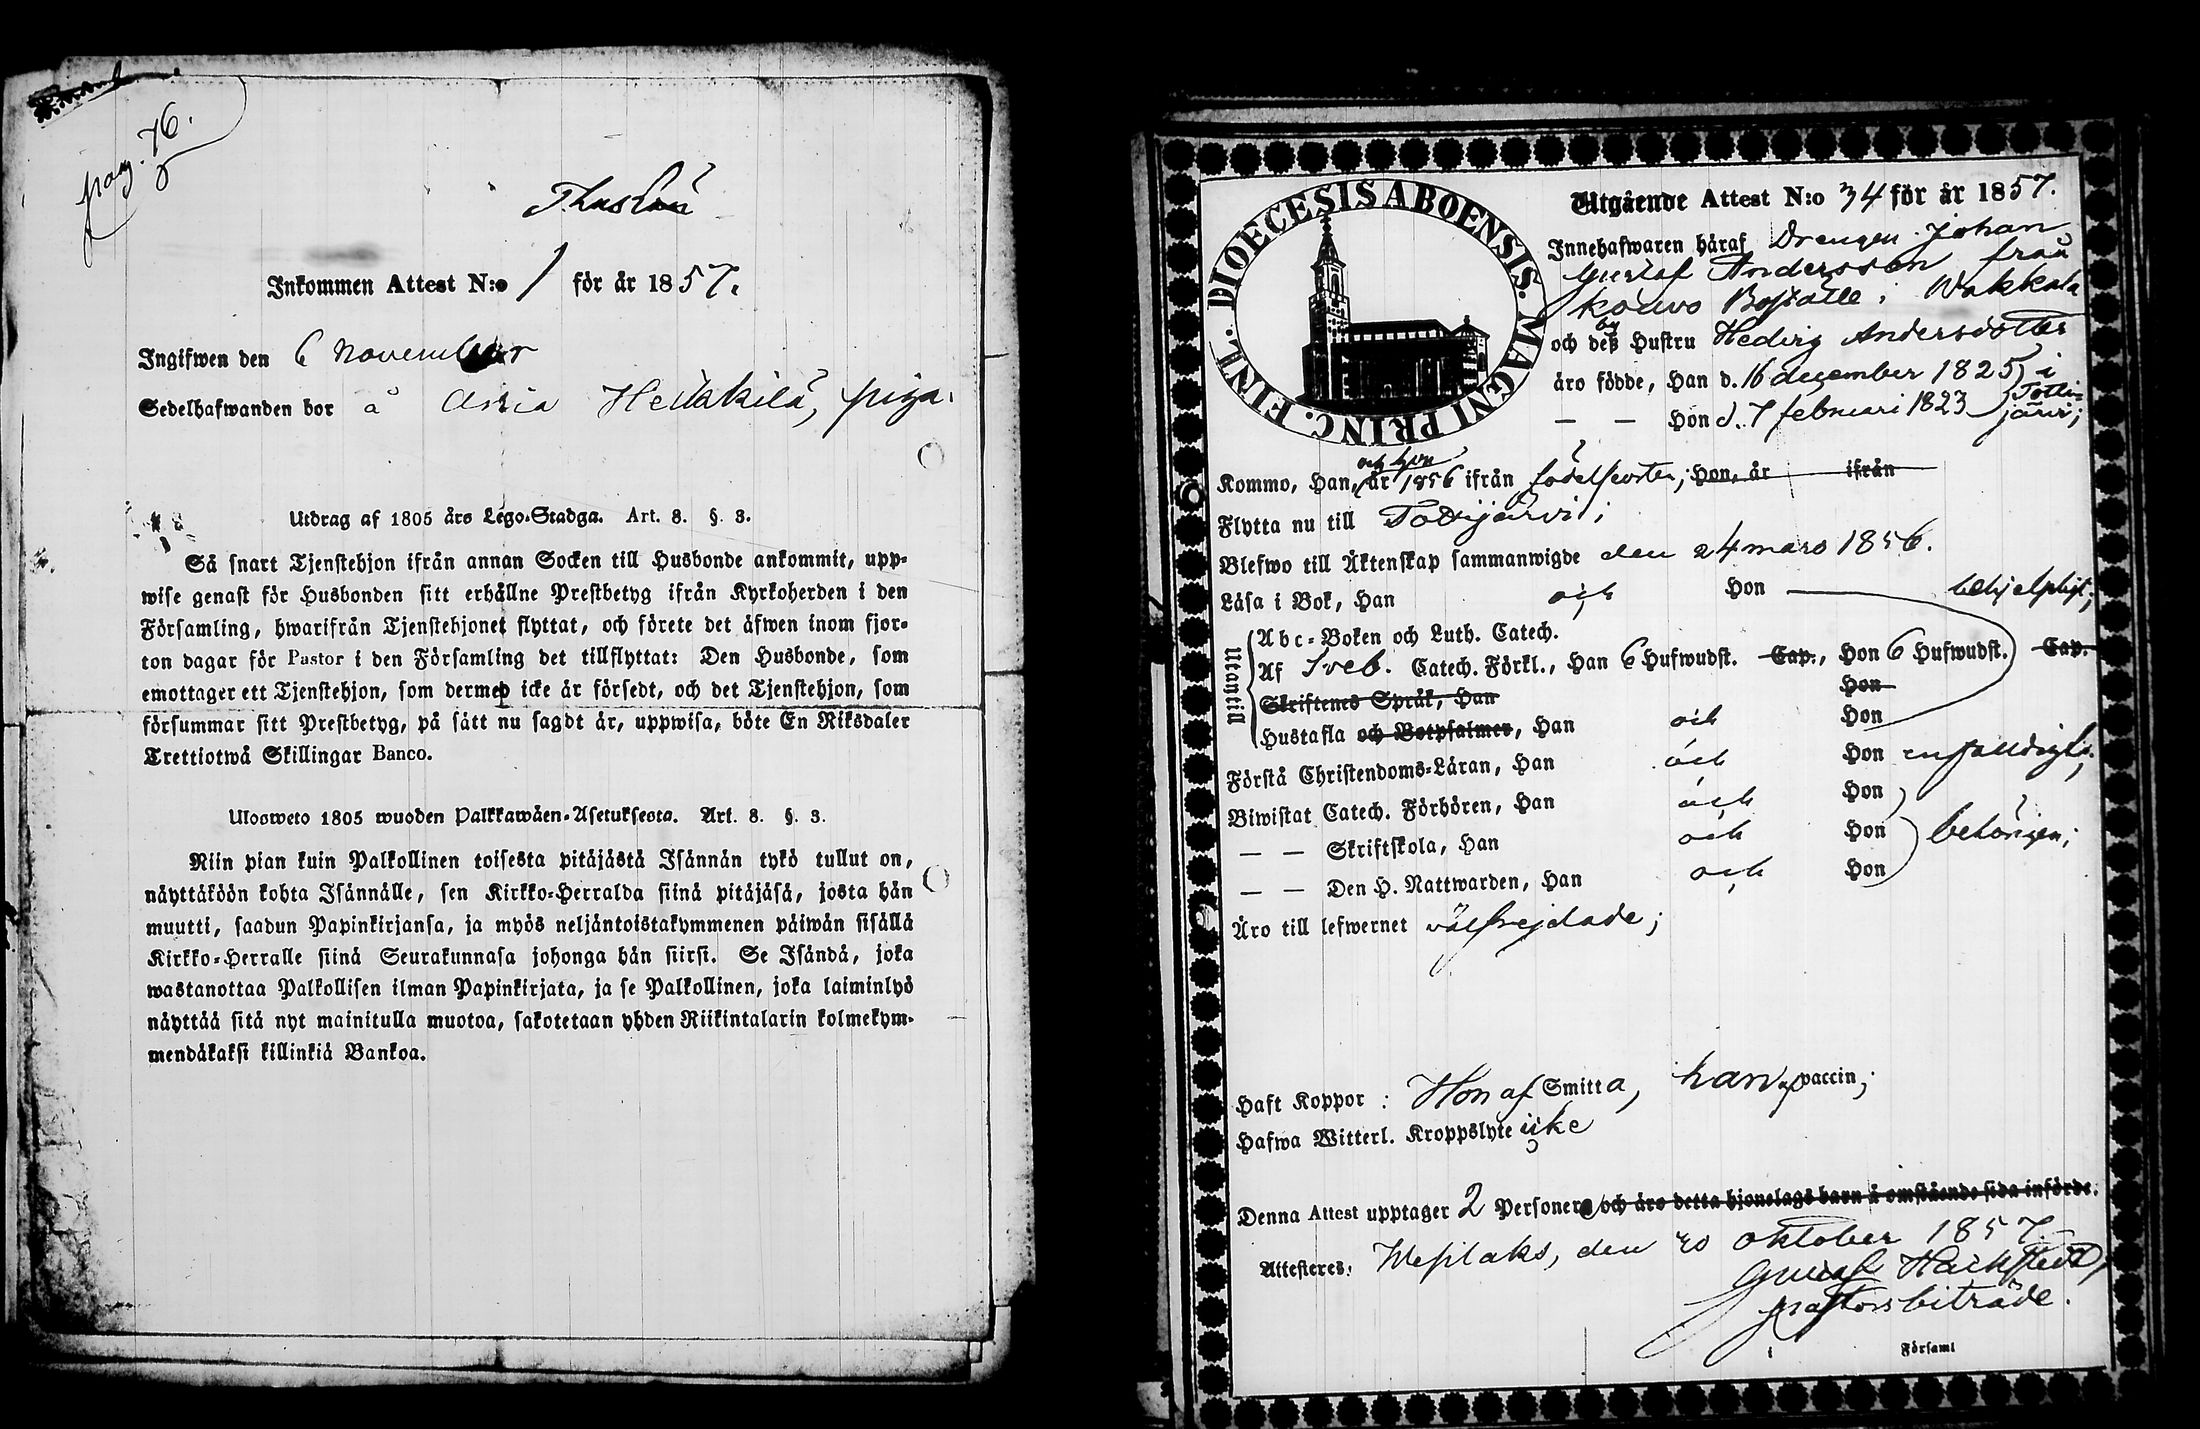 pag. 76.
5
Inkommen Attest N:o 1 för år 1857.
Ingifwen den 6 November
Sedelhafwanden bor å Heikkilä, piga.
Utdrag af 1805 års Lego-Stadga. Art. 8. §. 3.
Så snart Tjenstehjon ifrån annan Socken till Husbonde ankommit, upp-
wise genast för Husbonden sitt erhållne Prestbetyg ifrån Kyrkoherden i den
Församling, hwarifrån Tjenstehjonet flyttat, och förete det äfwen inom fjor-
ton dagar för Pastor i den Församling det tillflyttat: Den Husbonde, som
emottager ett Tjenstehjon, som dermed icke är försedt, och det Tjenstehjon, som
försummar sitt Prestbetyg, på sätt nu sagdt är, uppwisa, böte En Riksdaler
Trettiotwå Skillingar Banco.
Ulosweto 1805 wuoden Palkkawäen-Asetuksesta. Art. 8. §. 3.
Niin pian kuin Palkollinen toisesta pitäjästä Isännän tykö tullut on,
näyttäköön kohta Isännälle, sen Kirkko-Herralda siinä pitäjäsä, josta hän
muutti, saadun Papinkirjansa, ja myös neljäntoistakymmenen päiwän sisällä
Kirkko-Herralle siinä Seurakunnasa johonga hän siirsi. Se Isändä, joka
wastanottaa Palkollisen ilman Papinkirjata, ja se Palkollinen, joka laiminlyö
näyttää sitä nyt mainitulla muotoa, sakotetaan yhden Riikintalarin kolmekym-
mendäkaksi killinkiä Bankoa.
DIOECESIS ABOENSIS. MAGNI PRINC. FINL.
Utgående Attest N:o 34 för år 1857.
Innehafwaren häraf Drengen Johan
Gustaf Andersson från
Kouvo Boställe i Wakkala
by
och deß Hustru Hedvig Andersdotter
äro födde, Han d. 16 december 1825 i
Hon d. 7 februari 1823 Tottijärvi;
och hon
Kommo, Han, år 1856 ifrån födelseorten; Hon, år ifrån
Flytta nu till Tottijärvi;
Blefwo till Äktenskap sammanwigde den 24 mars 1856.
Läsa i Bok, Han och Hon behjelpligt;
Utantill
Abc-Boken och Luth. Catech.
Af Sveb. Catech. Förkl., Han 6 Hufwudst. Cap., Hon 6 Hufwudst. Cap.
Skriftenes Språk, Han Hon
Hustafla och Botpsalmer, Han och Hon
Förstå Christendoms-Läran, Han och Hon enfaldigt;
Biwistat Catech. Förhören, Han och Hon
— — Skriftskola, Han och Hon behörigen;
— — Den H. Nattwarden, Han och Hon
Äro till lefwernet välfrejdade;
Haft Koppor: Hon af Smitta, han af vaccin;
Hafwa Witterl. Kroppslyte icke
Denna Attest upptager 2 Personer och äro detta hjonelags barn å omstående sida införde.
Attesteres. Wesilaks, den 20 oktober 1857.
Gustaf
pastorsbiträde.
i Församl